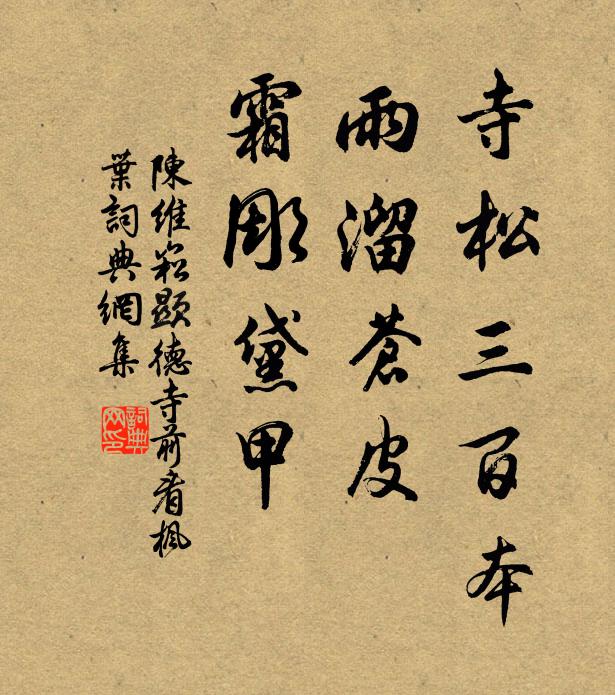 寺松三百本
雨溜蒼皮
霜彫黛甲
陳維崧顯德寺前看楓
葉詞典網集
詞典
网印